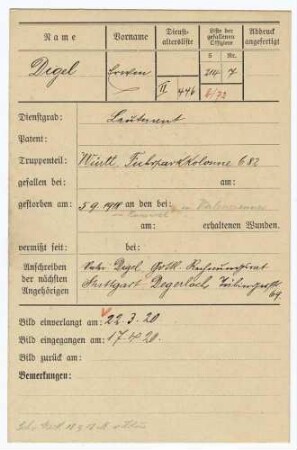 Name Vorname Dienst-altersliste Liste der gefallenen Offiziere Abdruck angefertigt
S. Nr.
Degel Erwin II 446 214 7
6/22
Dienstgrad: Leutnant
Patent:
Truppenteil: Württ. Fuhrparkkolonne 682
gefallen bei: am:
gestorben am: 5.9.1918 an den bei:
am: erhaltenen Wunden.
vermißt seit: bei:
Anschreiben der nächsten Angehörigen
Vater: Degel, Rechnungsrat
Stuttgart Degerloch, 64
Bild einverlangt am: 22.3.20
Bild eingegangen am: 17.4.20.
Bild zurück am:
Bemerkungen: